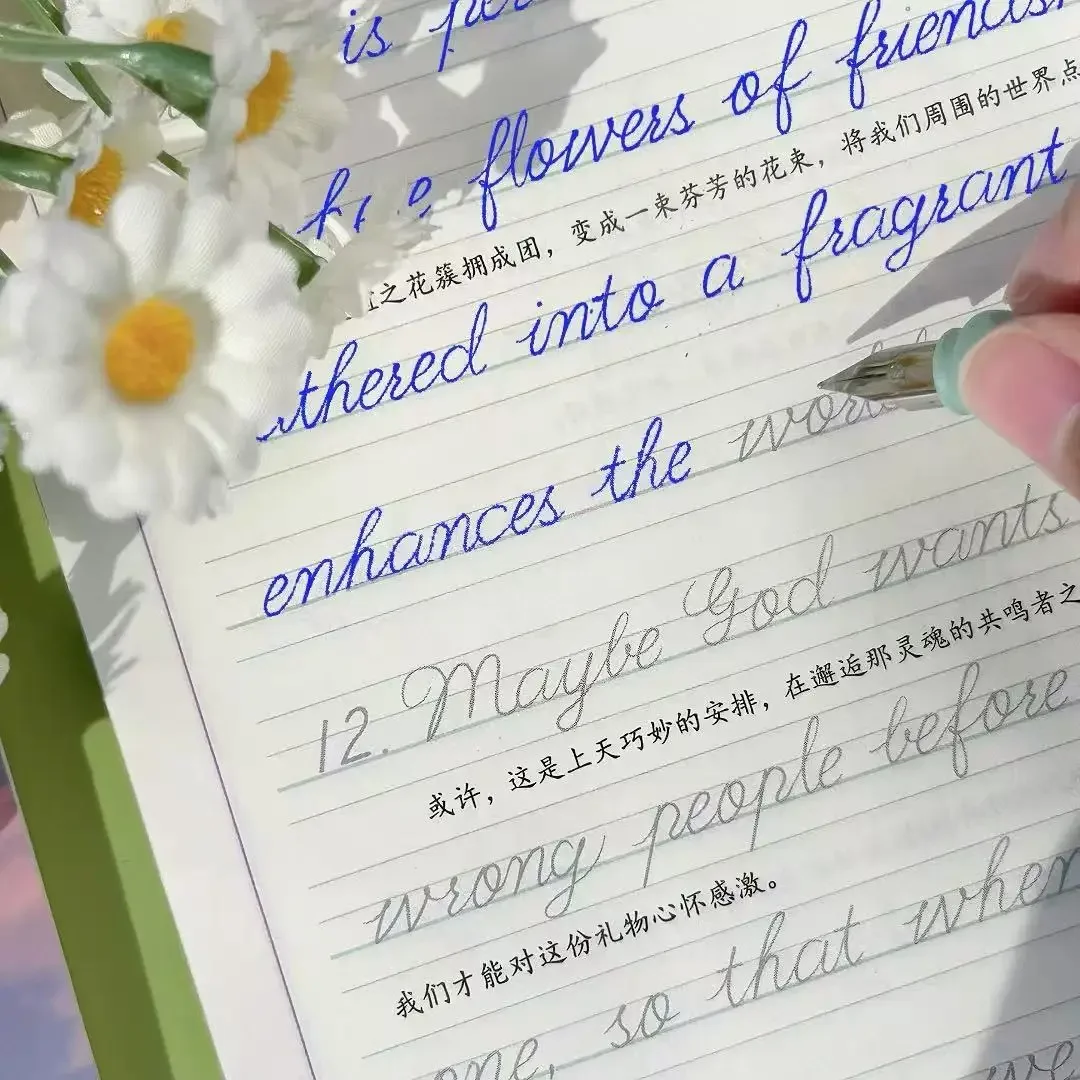 is
flowers of
之花簇拥成团，变成一束芬芳的花束，将我们周围的世界点
thered into a fragrant
enhances the
12. Maybe God wants
或许，这是上天巧妙的安排，在邂逅那灵魂的共鸣者之
wrong people before
我们才能对这份礼物心怀感激。
one, so that when